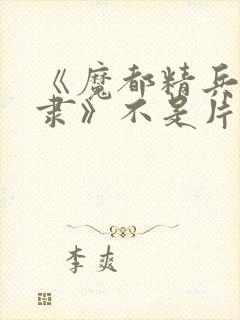 《魔都精兵
隶》不是片
李爽